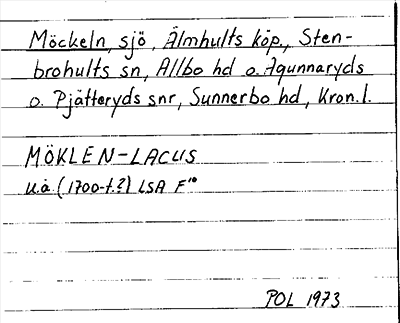 Möckeln, sjö, Älmhults köp., Sten-
brohults sn, Allbo hd o. Agunnaryds
o. Pjätteryds snr, Sunnerbo hd, Kron.l.
MÖKLEN-LACUS
u.å. (1700-t.?) LSA F¹⁰
POL 1973